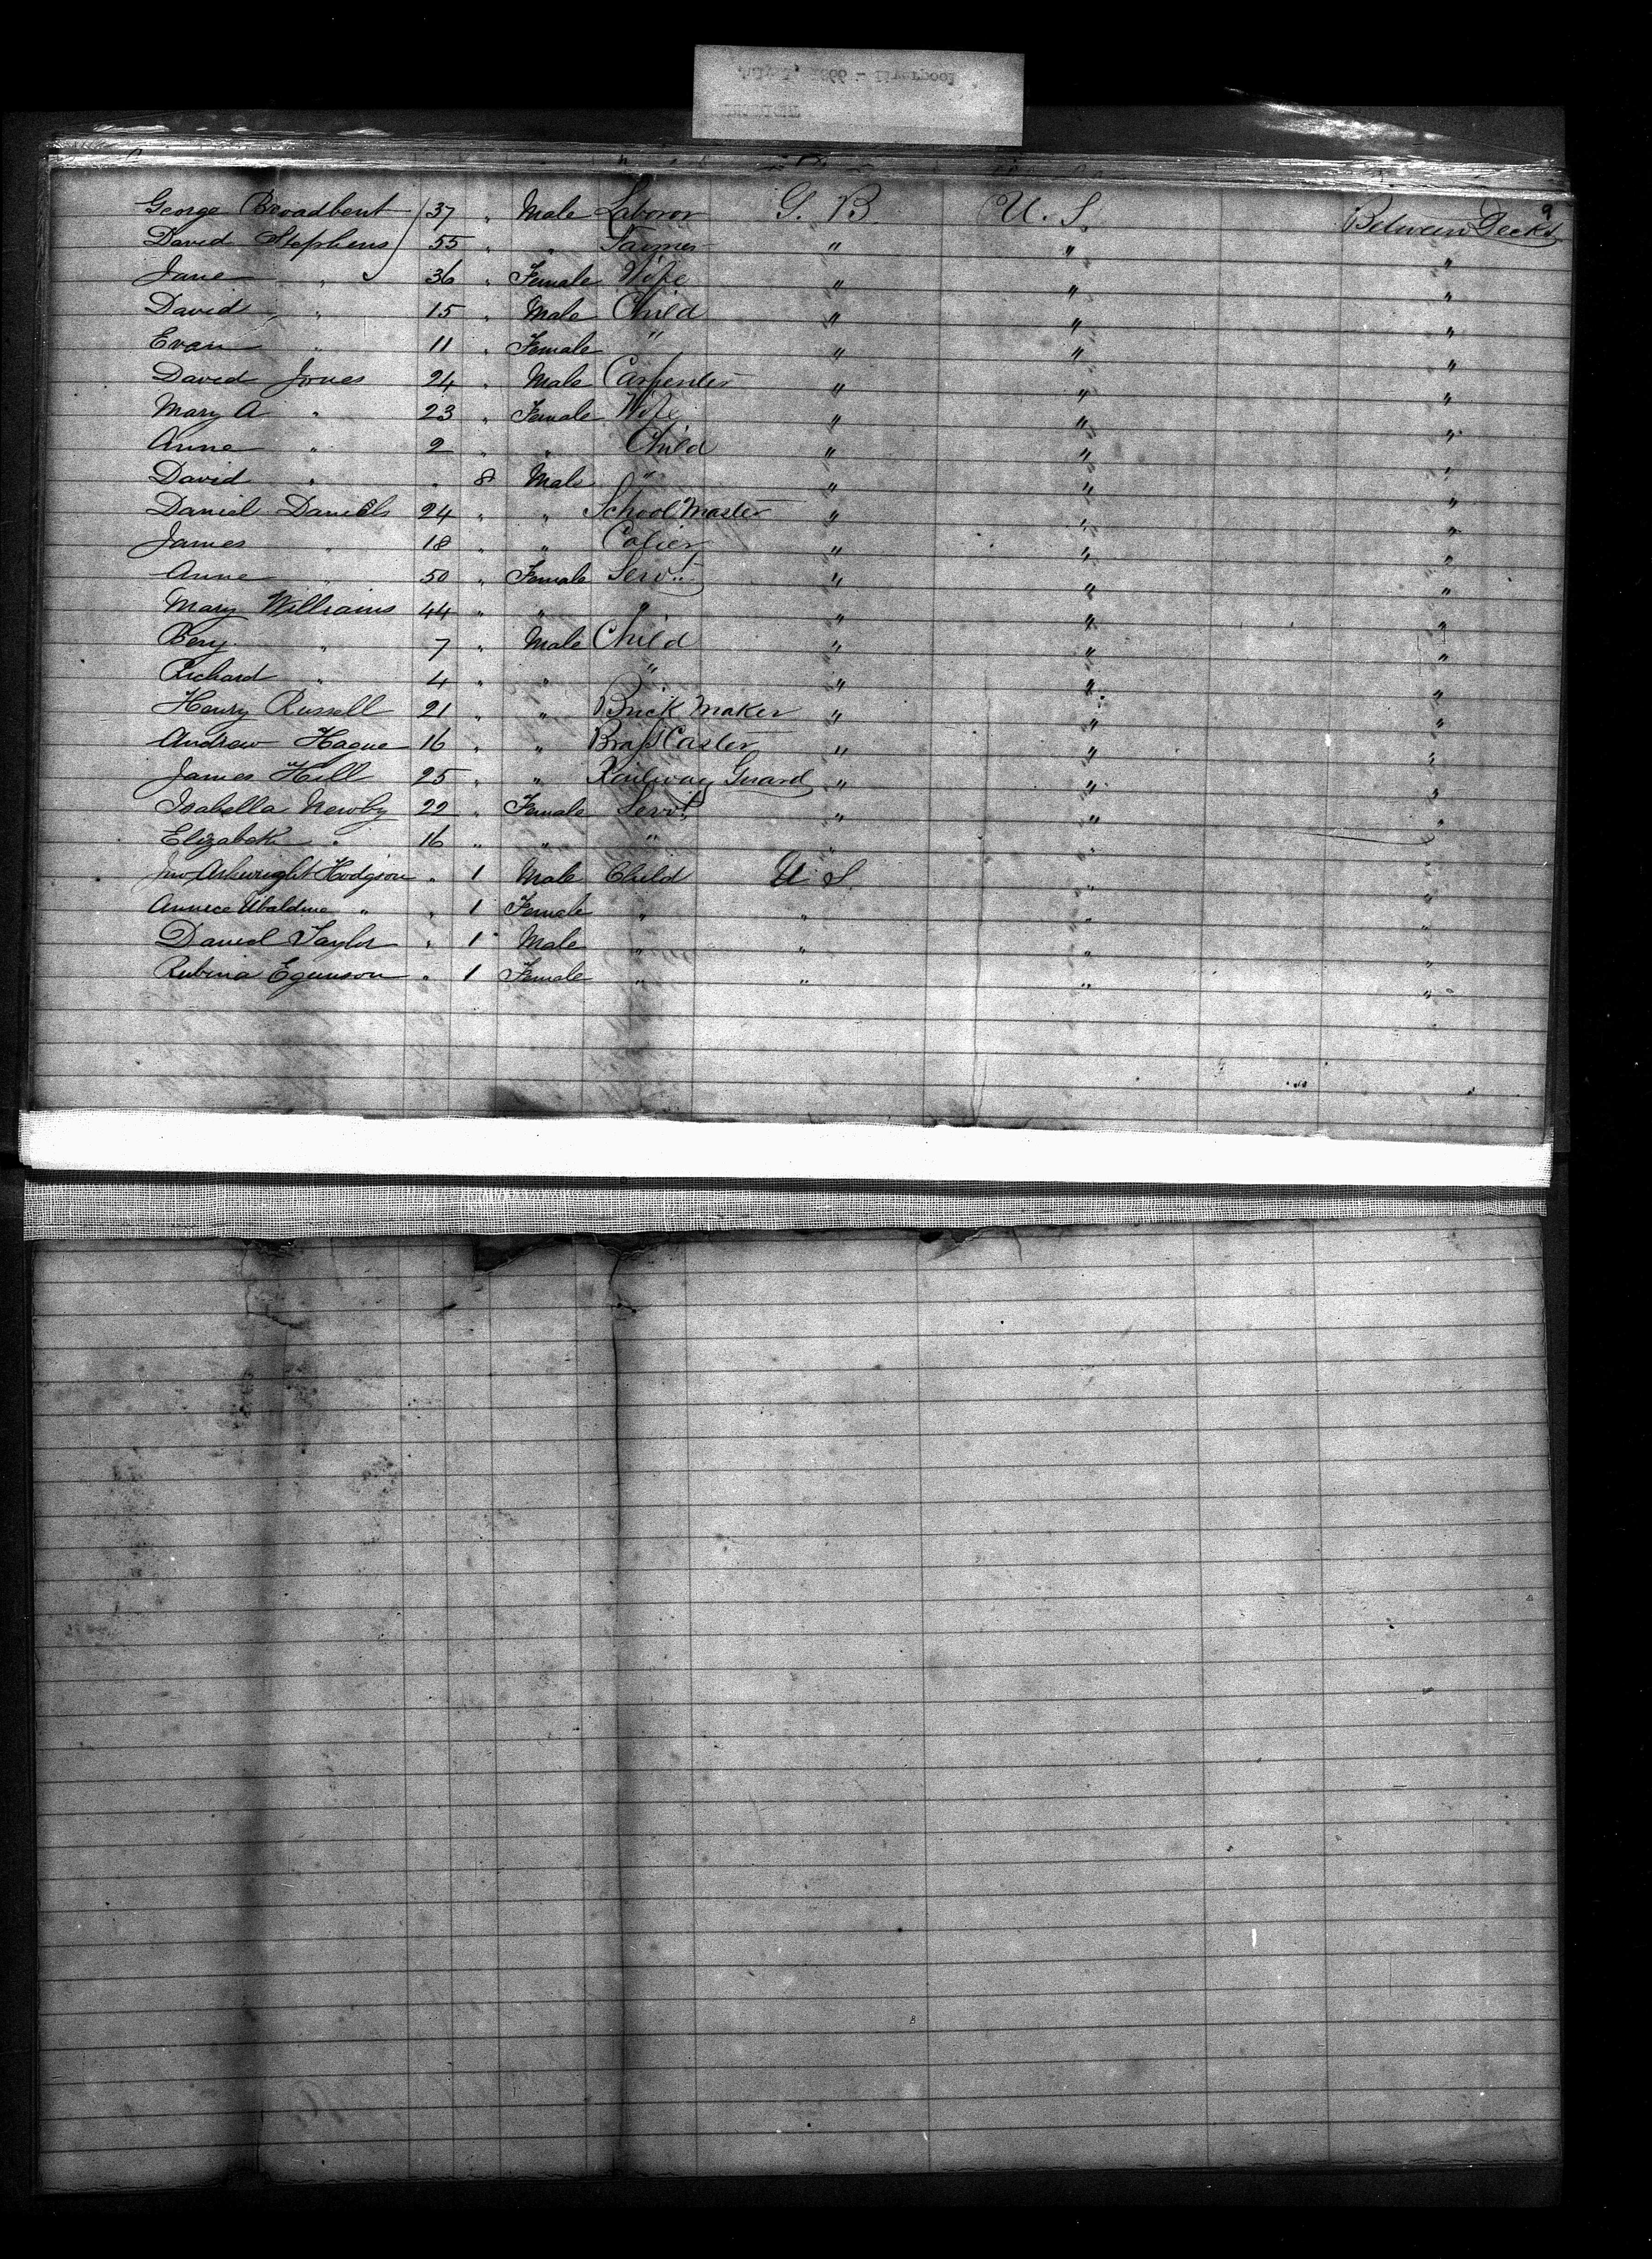 9
George Broadbent 37 " Male Laboror G. B U. S. Between Decks
David Stephens 55 " " Farmer " " "
Jane " 36 " Female Wife " " "
David " 15 " Male Child " " "
Evan " 11 " Female " " " "
David Jones 24 " Male Carpenter " " "
Mary A " 23 " Female Wife " " "
Anne " 2 " " Child " " "
David " " 8 Male " " " "
Daniel Daniels 24 " " School Master " " "
James " 18 " " Colier " " "
Anne " 50 " Female Servt. " " "
Mary Williams 44 " " " " " "
Benj " 7 " Male Child " " "
Richard " 4 " " " " " "
Henry Russell 21 " " Brick Maker " " "
Andrew Hague 16 " " Brass Caster " " "
James Hill 25 " " Railway Guard " " "
Isabella Newby 22 " Female Servt. " " "
Elizabeth " 16 " " " " " "
Jno Arkwright Hodgson " 1 Male Child U S. " "
" " 1 Female " " " "
Daniel Taylor " 1 Male " " " "
Rubina " 1 Female " " " "